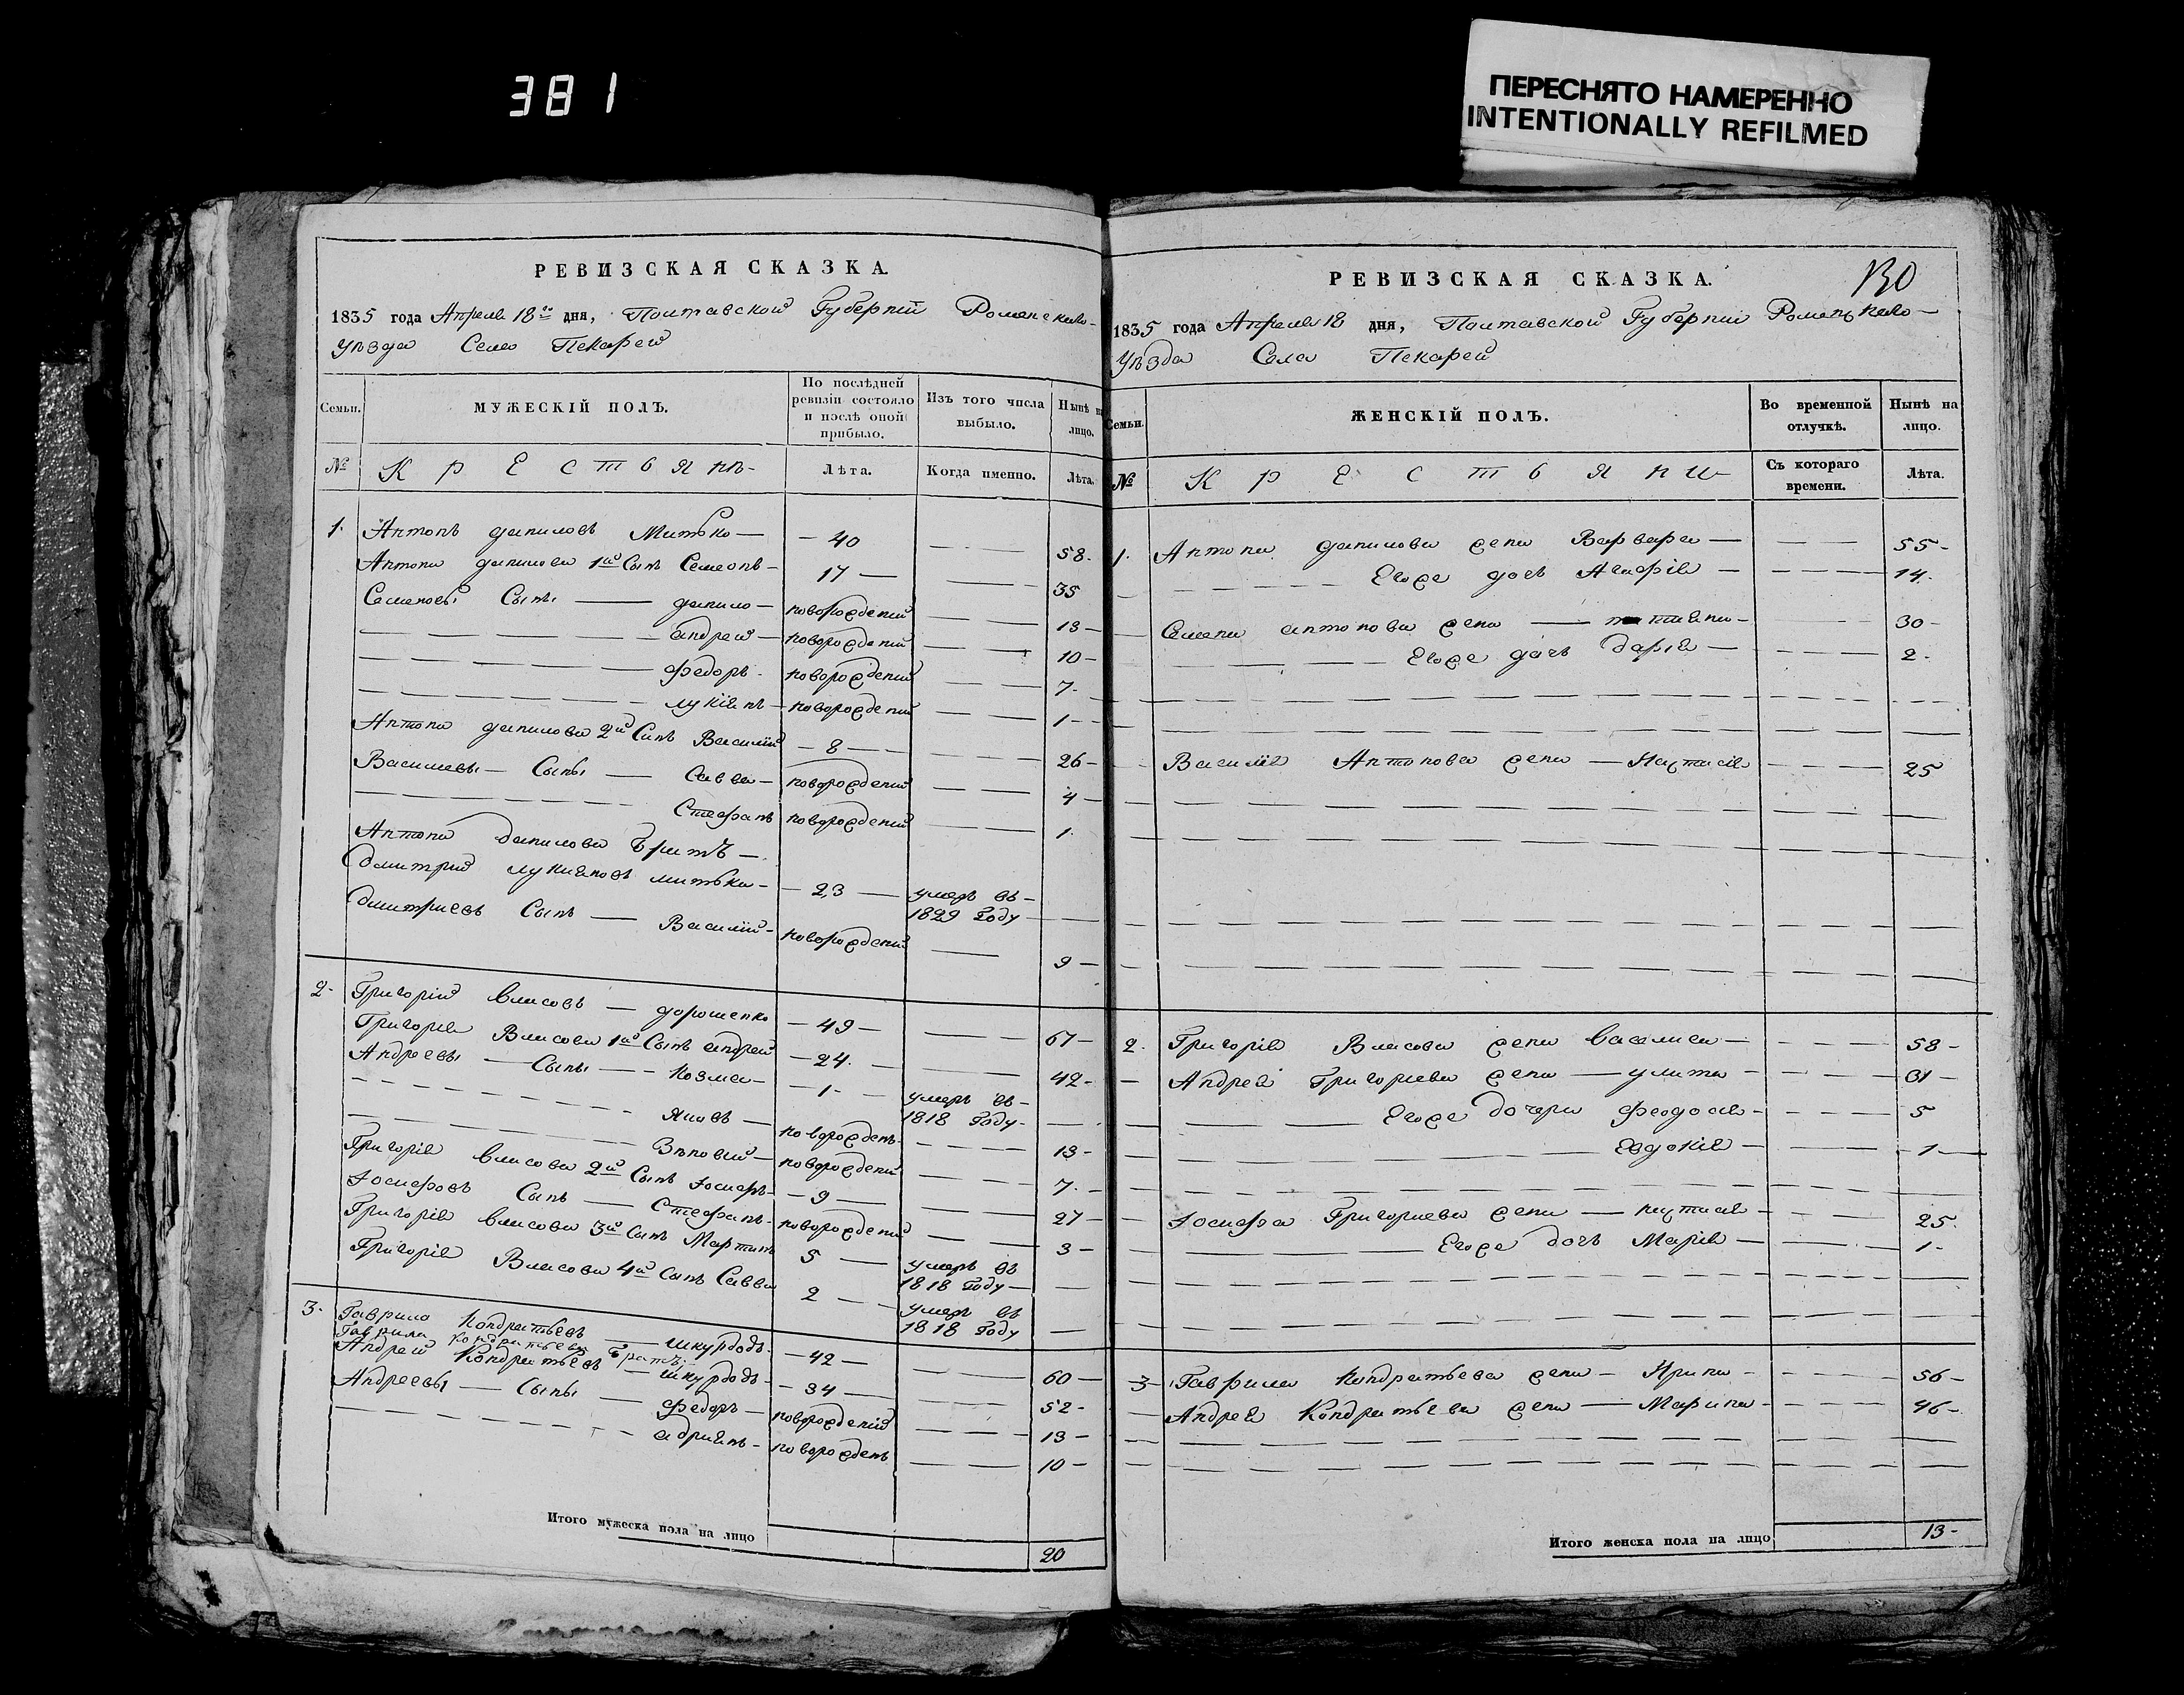 381
ПЕРЕСНЯТО НАМЕРЕННО
INTENTIONALLY REFILMED
РЕВИЗСКАЯ СКАЗКА.
1835 года Апреля 18го дня, Полтавской Губерний Роменского
Уѣзда Села Пекарей
Семьи.
МУЖЕСКІЙ ПОЛЪ.
По послѣдней ревизіи состояло и послѣ оной прибыло.
Изъ того числа выбыло.
Нынѣ на лицо.
№
Крестьянъ
Лѣта.
Когда именно.
Лѣта.
1. Антонъ даниловъ Митько — 40 — 58.
Антона данилова 1й Сынъ Семенъ 17 — 35
Семеновы Сынъ — данило — новорождений — 13
андрей — новорождений — 10
федоръ — новорождений — 7
лукіянъ — новорождений — 1
Антона данилова 2й Синъ Василий — 8 — 26
Василевы — Сыны — Савва — новорождений — 4
Стефанъ новорождений — 1.
Антона данилова братъ —
дмитрий лукяновъ митька — 23 — умеръ въ 1829 году
дмитриевъ Сынъ — Василий — новорождений — 9
2. Григорій власовъ — дорошенко — 49 — 67
Григорія Власова 1й Сынъ андрей — 24. — 42
Андреевы — Сыны — Козма — 1 — умеръ въ 1818 году
яковъ — новорожденъ — 13
Зѣновий — новорождений — 7
Григорія власова 2й Сынъ Iосифъ — 9 — 27
Iосифовъ Сынъ — Стефанъ — новорождений — 3
Григорія власова 3й Сынъ Мартинъ 5 — умеръ въ 1818 году
Григорія Власова 4й Сынъ Савва 2 — умеръ въ 1818 году
3. Гаврило Кондратьевъ — шкурдодъ — 42 — 60
Гаврила кондратьева братъ
Андрей Кондратьевъ — шкурдодъ — 34 — 52
Андреевы — Сыны — федоръ — новорожденій — 13
адриянъ — новорожденъ — 10
Итого мужеска пола на лицо 20
130
РЕВИЗСКАЯ СКАЗКА.
1835 года Апреля 18 дня, Полтавской Губерний Роменского
Уѣзда Села Пекарей
Семьи.
ЖЕНСКІЙ ПОЛЪ.
Во временной отлучкѣ.
Нынѣ на лицо.
№
Крестьянки
Съ котораго времени.
Лѣта.
1. Антона данилова жена Варвара — 55
Егоже дочь Агафія — 14.
Семена антонова жена — татияна — 30
Егоже дочь дарія — 2.
Василія Антонова жена — Настасія — 25
2. Григорія Власова жена василиса — 58
Андрея Григориева жена — улита — 31
Егоже дочери феодосія — 5
Евдокія — 1
Iосифа Григориева жена — настасія — 25.
Егоже дочь Марія — 1
3 Гаврила Кондратьева жена — Ирина — 56
Андрея Кондратьева жена — Марина — 46
Итого женска пола на лицо 13